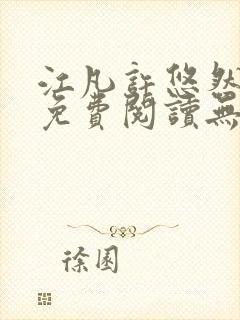 江凡許悠然
免費閱讀無
徐園